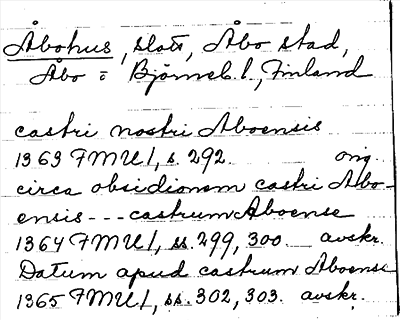 Åbohus, slott, Åbo stad,
Åbo o Björneb. l., Finland
castri nostri Aboensis
1363 FMU I, s. 292. orig.
circa obsidionem castri Abo-
ensis --- castrum Aboense
1364 FMU I, ss. 299, 300 avskr.
Datum apud castrum Aboense
1365 FMU I, ss. 302, 303. avskr.